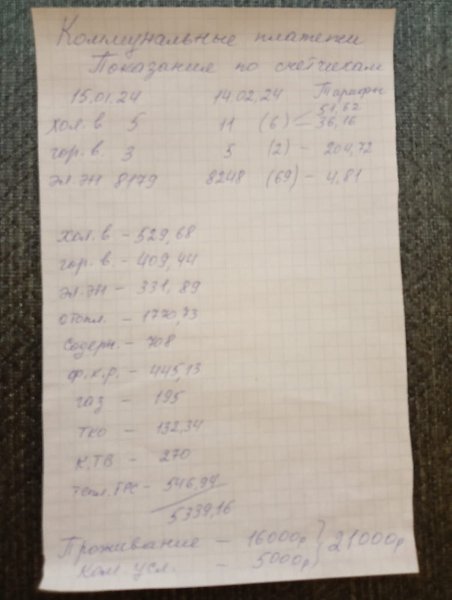 Коммунальные платежи
Показания по счетчикам
15.01.24 14.02.24 Тарифы
51,62
хол.в 5 11 (6) 36,16
гор.в. 3 5 (2) - 204,72
эл.эн 8179 8248 (69) - 4,81
хол.в - 529,68
гор.в. - 409,44
эл.эн - 331,89
отопл. - 1770,73
содерж. - 708
ф.к.р. - 445,13
газ - 195
тко - 132,34
к.тв - 270
тепл.ГРС - 546,97
5339,16
Проживание - 16000р } 21000р
Ком. усл. - 5000р